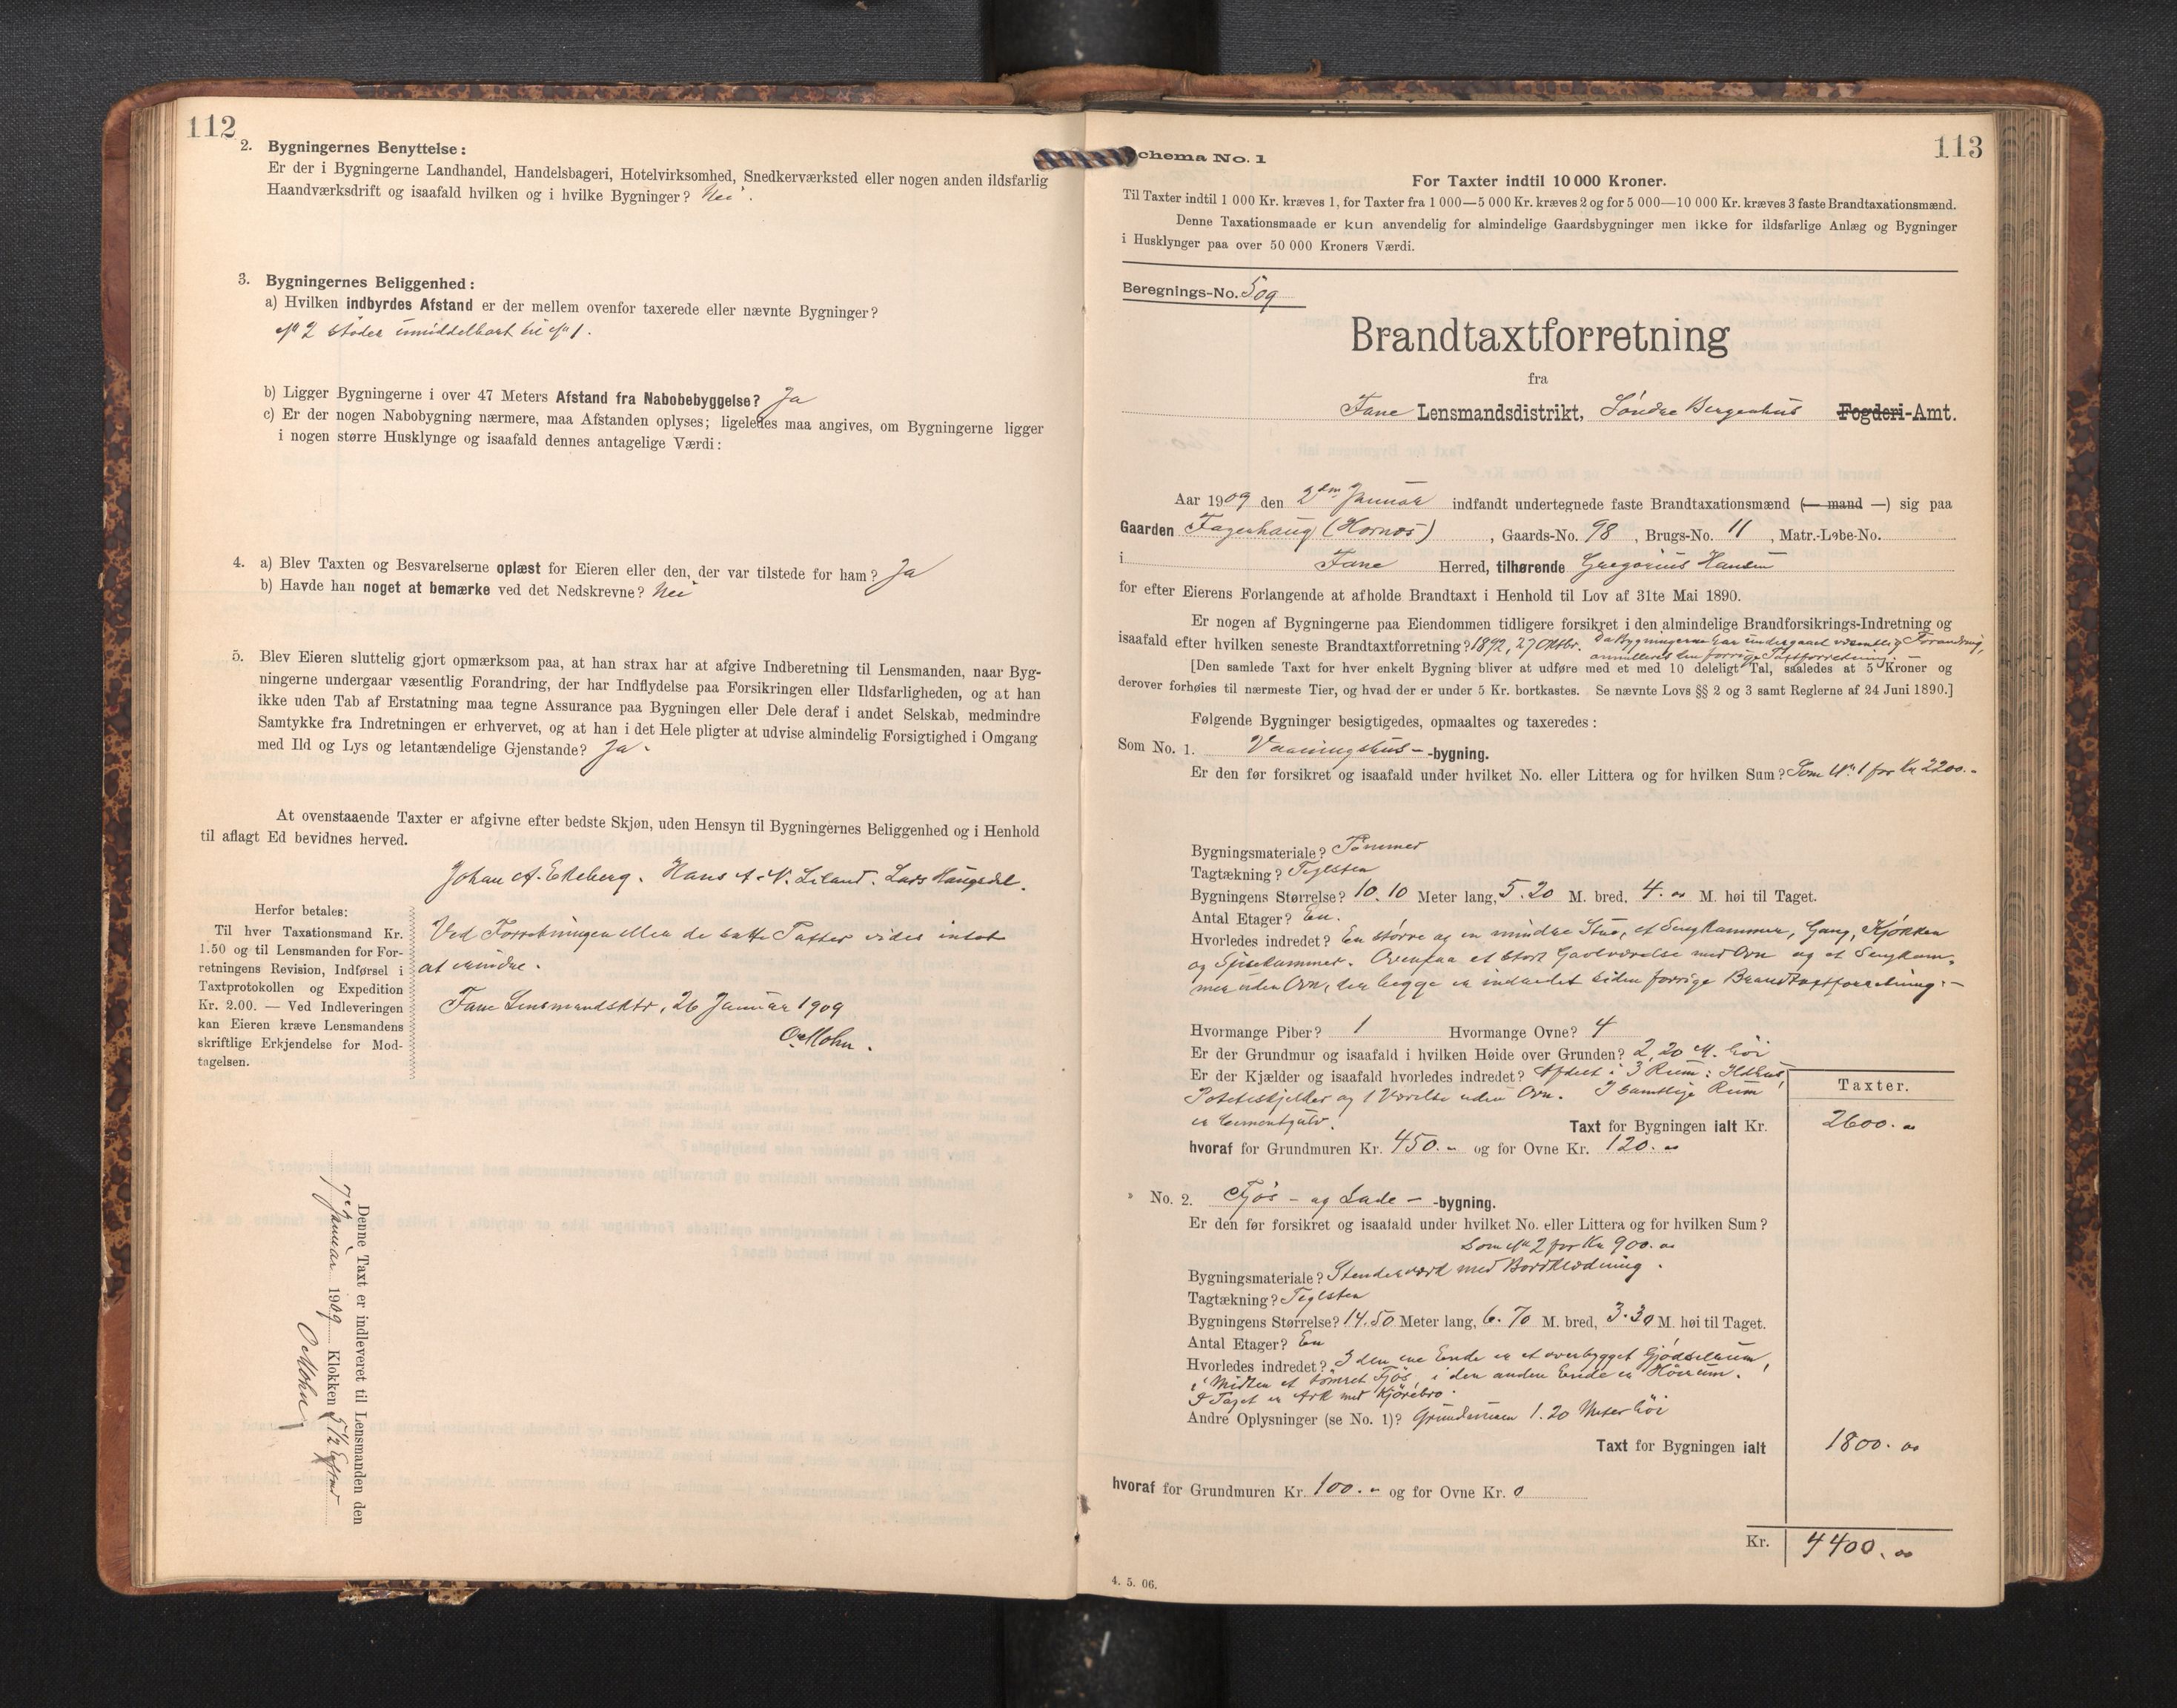 112
2. Bygningernes Benyttelse:
Er der i Bygningerne Landhandel, Handelsbageri, Hotelvirksomhed, Snedkerværksted eller nogen anden ildsfarlig
Haandværksdrift og isaafald hvilken og i hvilke Bygninger? Nei.
3. Bygningernes Beliggenhed:
a) Hvilken indbyrdes Afstand er der mellem ovenfor taxerede eller nævnte Bygninger?
No 2 støder umiddelbart til No 1.
b) Ligger Bygningerne i over 47 Meters Afstand fra Nabobebyggelse? Ja
c) Er der nogen Nabobygning nærmere, maa Afstanden oplyses; ligeledes maa angives, om Bygningerne ligger
i nogen større Husklynge og isaafald dennes antagelige Værdi:
4. a) Blev Taxten og Besvarelserne oplæst for Eieren eller den, der var tilstede for ham? Ja
b) Havde han noget at bemærke ved det Nedskrevne? Nei
5. Blev Eieren sluttelig gjort opmærksom paa, at han strax har at afgive Indberetning til Lensmanden, naar Byg-
ningerne undergaar væsentlig Forandring, der har Indflydelse paa Forsikringen eller Ildsfarligheden, og at han
ikke uden Tab af Erstatning maa tegne Assurance paa Bygningen eller Dele deraf i andet Selskab, medmindre
Samtykke fra Indretningen er erhvervet, og at han i det Hele pligter at udvise almindelig Forsigtighed i Omgang
med Ild og Lys og letantændelige Gjenstande? Ja.
At ovenstaaende Taxter er afgivne efter bedste Skjøn, uden Hensyn til Bygningernes Beliggenhed og i Henhold
til aflagt Ed bevidnes herved.
Johan A. Ekeberg. Hans A. N. Liland. Lars Haugsdal.
Herfor betales:
Til hver Taxationsmand Kr.
1.50 og til Lensmanden for For-
retningens Revision, Indførsel i
Taxtprotokollen og Expedition
Kr. 2.00. — Ved Indleveringen
kan Eieren kræve Lensmandens
skriftlige Erkjendelse for Mod-
tagelsen.
Ved Forretningen eller de satte Taxter vides intet
at erindre.
Fane Lensmandsktr, 26 Januar 1909
O. Mohn.
Denne Taxt er indleveret til Lensmanden den
7 Januar 1909 Klokken 5 1/2 Efterm
O Mohn
Schema No. 1
113
For Taxter indtil 10 000 Kroner.
Til Taxter indtil 1 000 Kr. kræves 1, for Taxter fra 1 000—5 000 Kr. kræves 2 og for 5 000—10 000 Kr. kræves 3 faste Brandtaxationsmænd.
Denne Taxationsmaade er kun anvendelig for almindelige Gaardsbygninger men ikke for ildsfarlige Anlæg og Bygninger
i Husklynger paa over 50 000 Kroners Værdi.
Beregnings-No. 509
Brandtaxtforretning
fra
Fane Lensmandsdistrikt, Søndre Bergenhus Fogderi-Amt.
Aar 1909 den 2den Januar indfandt undertegnede faste Brandtaxationsmænd (— mand —) sig paa
Gaarden Fagerhaug (Hornæs), Gaards-No. 98, Brugs-No. 11, Matr.-Løbe-No.
i Fane Herred, tilhørende Gregorius Hansen
for efter Eierens Forlangende at afholde Brandtaxt i Henhold til Lov af 31te Mai 1890.
Er nogen af Bygningerne paa Eiendommen tidligere forsikret i den almindelige Brandforsikrings-Indretning og
isaafald efter hvilken seneste Brandtaxtforretning? 1892, 27 Oktbr. Da Bygningerne har undergaaet væsentlig Forandring,
annulleres den forrige Taxtforretning. —
[Den samlede Taxt for hver enkelt Bygning bliver at udføre med et med 10 deleligt Tal, saaledes at 5 Kroner og
derover forhøies til nærmeste Tier, og hvad der er under 5 Kr. bortkastes. Se nævnte Lovs §§ 2 og 3 samt Reglerne af 24 Juni 1890.]
Følgende Bygninger besigtigedes, opmaaltes og taxeredes:
Som No. 1. Vaaningshus- -bygning.
Er den før forsikret og isaafald under hvilket No. eller Littera og for hvilken Sum? Som No 1 for Kr 2200.-
Bygningsmateriale? Tømmer
Tagtækning? Teglsten
Bygningens Størrelse? 10.10 Meter lang, 5.20 M. bred, 4.00 M. høi til Taget.
Antal Etager? En.
Hvorledes indredet? En større og en mindre Stue, et Sengkammer, Gang, Kjøkken
og Spisekammer. Ovenpaa et stort Gavlværelse med Ovn og et Sengkam-
mer uden Ovn, der begge er indredet siden forrige Brandtaxtforretning. —
Hvormange Piber? 1 Hvormange Ovne? 4
Er der Grundmur og isaafald i hvilken Høide over Grunden? 2,20 M. høi
Er der Kjælder og isaafald hvorledes indredet? Afdelt i 3 Rum: Ildhus,
Potetiskjelder og 1 Værelse uden Ovn. I samtlige Rum
er Cementgulv.
Taxter.
Taxt for Bygningen ialt Kr. 2600.00
hvoraf for Grundmuren Kr. 450.- og for Ovne Kr. 120.00
» No. 2. Fjøs- og Lade- -bygning.
Er den før forsikret og isaafald under hvilket No. eller Littera og for hvilken Sum?
Som No 2 for Kr 900.00
Bygningsmateriale? Stenderværk med Bordklædning.
Tagtækning? Teglsten
Bygningens Størrelse? 14.50 Meter lang, 6.70 M. bred, 3.30 M. høi til Taget.
Antal Etager? En
Hvorledes indredet? I den ene Ende er et overbygget Gjødselrum,
i Midten et tømret Fjøs, i den anden Ende er Hörum.
I Taget er Ark med Kjørebro.
Andre Oplysninger (se No. 1)? Grundmuren 1.20 Meter høi
Taxt for Bygningen ialt 1800.00
hvoraf for Grundmuren Kr. 100.- og for Ovne Kr. 0
Kr. 4400.00
4. 5. 06.